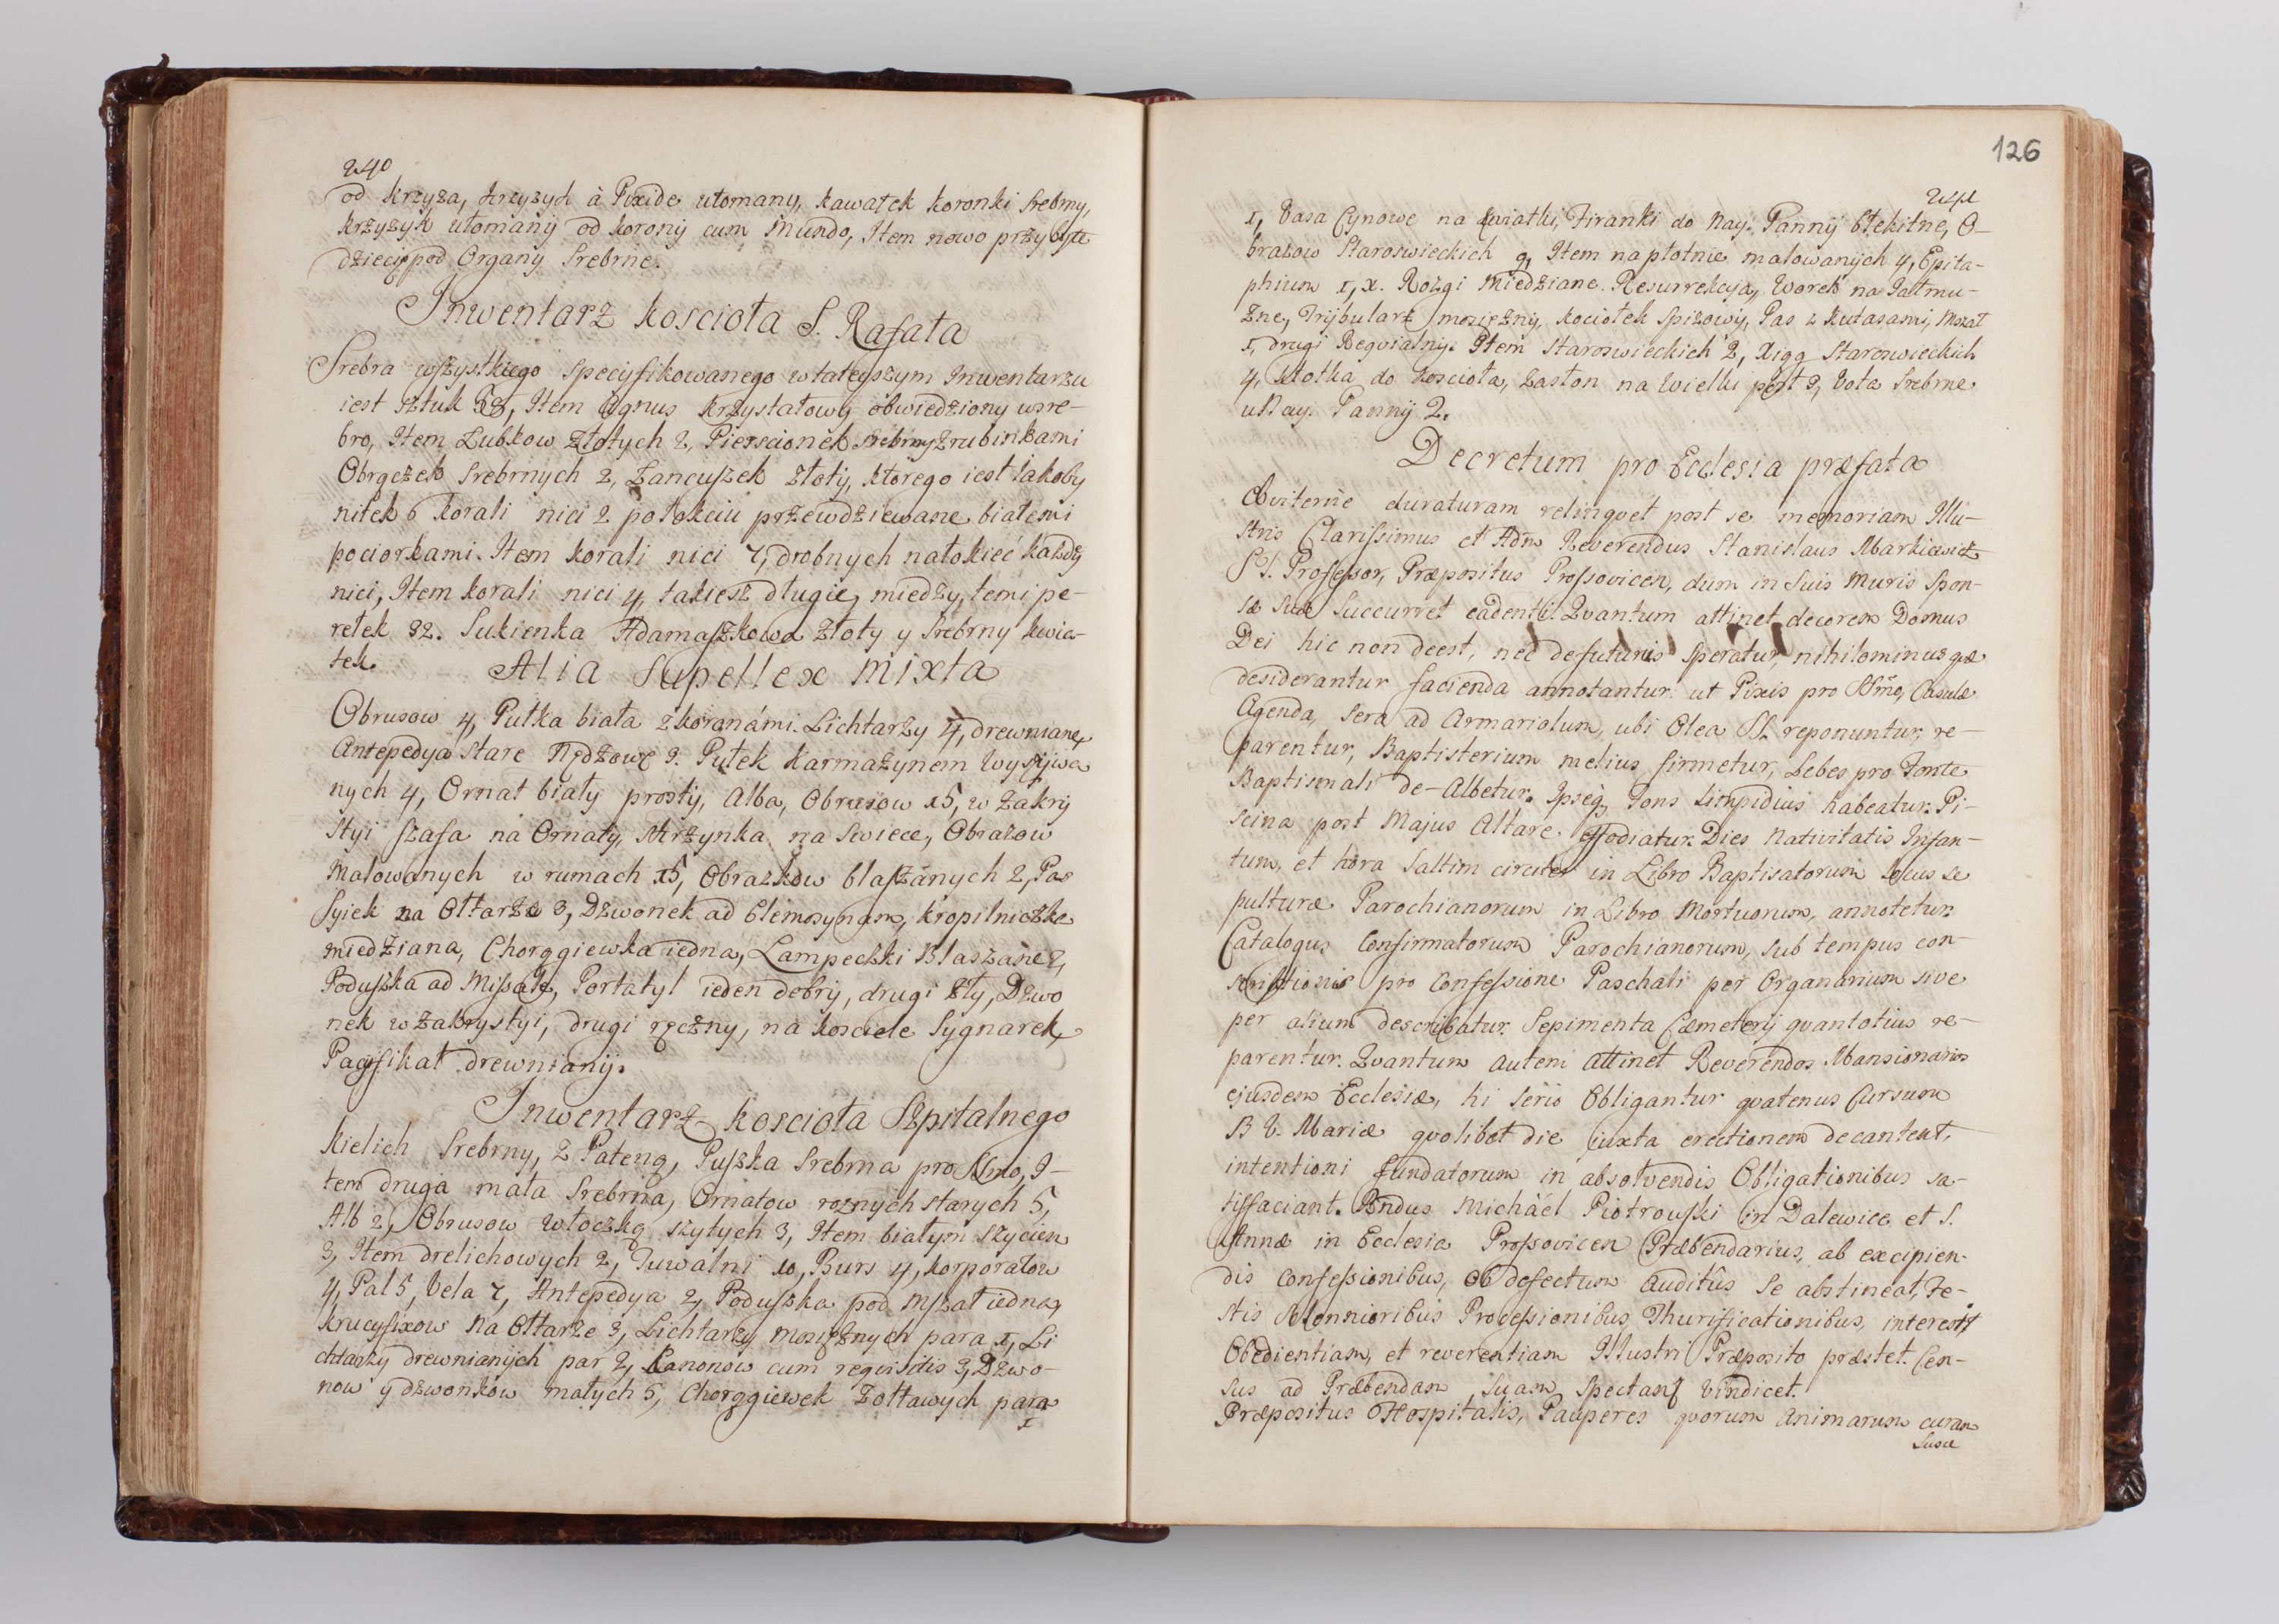 240
od krzyża, krzyzyk à Pixide ułomany, kawałek koronki srebrny,
krzyzyk ułomany od korony cum Mundo, Item nowo przybyłe
dzieci pod Organy Srebrne.
Inwentarz kosciola S. Rafała
Srebra wszystkiego specyfikowanego w tateyszym Inwentarzu
iest sztuk Item Agnus krzystałowy obwiedziony w sre-
bro, Item Lubkow złotych 2, Pierscionek srebrny z rubinkami
Obrączek Srebrnych 2, Łancuszek złoty, ktorego iest iakoby
nitek 6 korali nici 2 połokciu przewdziewane białemi
pociorkami. Item korali nici 7, drobnych na łokieć każdy
nici, Item korali nici 4, takiesz długie, miedzy temi pe-
rełek 32. Sukienka Adamaszkowa złoty y srebrny kwia-
tek.
Alia Supellex Mixta
Obrusow 4, Pułka biała z koronámi. Lichtarzy 4, drewniane,
Antepedya stare 3. Pułek karmazynem wyszywa
nych 4, Ornat biały prosty, Alba, Obrusow 15, w Zakry
styi szafa na Ornaty, skrzynka na swiece, Obrazow
Malowanych w rumach 15, Obrazkow blaszanych 2, Pas
syiek na Ołtarze 3, Dzwonek ad Elemosynam, kropilniczka
miedziana, Chorągiewka iedna, Lampeczki Blaszane 2,
Poduszka ad Missale, Portatyl ieden dobry, drugi zły, Dzwo
nek w Zakrystyi, drugi ręczny, na kosciele Sygnarek
Pacyfikał drewniany.
Inwentarz kosciola Szpitalnego
kielich Srebrny, z Pateną, Puszka Srebrna pro SSmo, I-
tem druga mała Srebrna, Ornatow roznych starych 5,
Alb 2, Obrusow włoczką szytych 3, Item białym szyciem
3, Item drelichowych 2, Tuwalni 10, Burs 4, korporałow
4, Pal 5, Vela 7, Antepedya 2, Poduszka pod Mszał iedna,
krucyfixow na Ołtarze 3, Lichtarzy mosiężnych para 1, Li
chtarzy drewnianych par 2, Kanonow cum reqvisitis 3, Dzwo-
now y dzwonkow małych 5, Chorągiewek żołtawych para
1
126
241
1, Vasa Cynowe na kwiatki, Firanki do Nay. Panny błękitne, O-
brazow Staroswieckich 9, Item na płotnie malowanych 4, Epita-
phium 1, x. Rożgi Miedziane. Resurrekcya, Worek na Jałmu-
żne, Trybularz mosiężny, kociołek spiżowy, Pas z kutasami, Mszał
1, drugi Reqvialny. Item Staroswieckich 2, Xiąg Staroswieckich
4, kłotka do kosciola, Zasłon na Wielki post 3, Vota Srebrne
u Nay. Panny 2.
Decretum pro Ecclesia præfata
Æviterne duraturam relinqvet post se memoriam Illu-
stris Clarissimus et Adm Reverendus Stanislaus Markiewicz
S.T. Professor, Præpositus Prossovicen, dum in Suis Muris Spon-
sæ suæ Succurret cadenti. Qvantum attinet decorem Domus
Dei hic non deest, nec defuturus speratur, nihilominus qæ
desiderantur facienda annotantur: ut Pixis pro SSmo, Casulæ
Agenda, Sera ad Armariolum, ubi Olea SS. reponuntur, re-
parentur, Baptisterium melius firmetur, Lebes pro Fonte
Baptismali de-Albetur. Ipseq, Fons limpidius habeatur. Pi-
scina post Majus Altare. effodiatur. Dies Nativitatis Infan-
tum, et hora Saltim circiter in Libro Baptisatorum locus se
pulturæ Parochianorum in Libro Mortuorum, annotetur.
Catalogus Confirmatorum Parochianorum, sub tempus con-
scriptionis pro Confessione Paschali per Organarium sive
per alium describatur. Sepimenta Cæmeterij qvantotius re-
parentur. Qvantum autem attinet Reverendos Mansionarios
ejusdem Ecclesiæ, hi serio Obligantur qvatenus Cursum
B V. Mariæ qvolibet die iuxta erectionem decantent,
intentioni fundatorum in absolvendis Obligationibus sa-
tisfaciant. Rndus Michäel Piotrowski in Dalewice et S.
Annæ in Ecclesia Prossovicen Præbendarius, ab excipien-
dis Confessionibus, ob defectum auditûs se abstineat, Fe-
stis Solennioribus Processionibus, Thurificationibus, intersit
Obedientiam, et reverentiam Illustri Præposito præstet. Cen-
sus ad Præbendam suam Spectant Vindicet.
Præpositus Hospitalis, Pauperes qvorum animarum curam
Susce